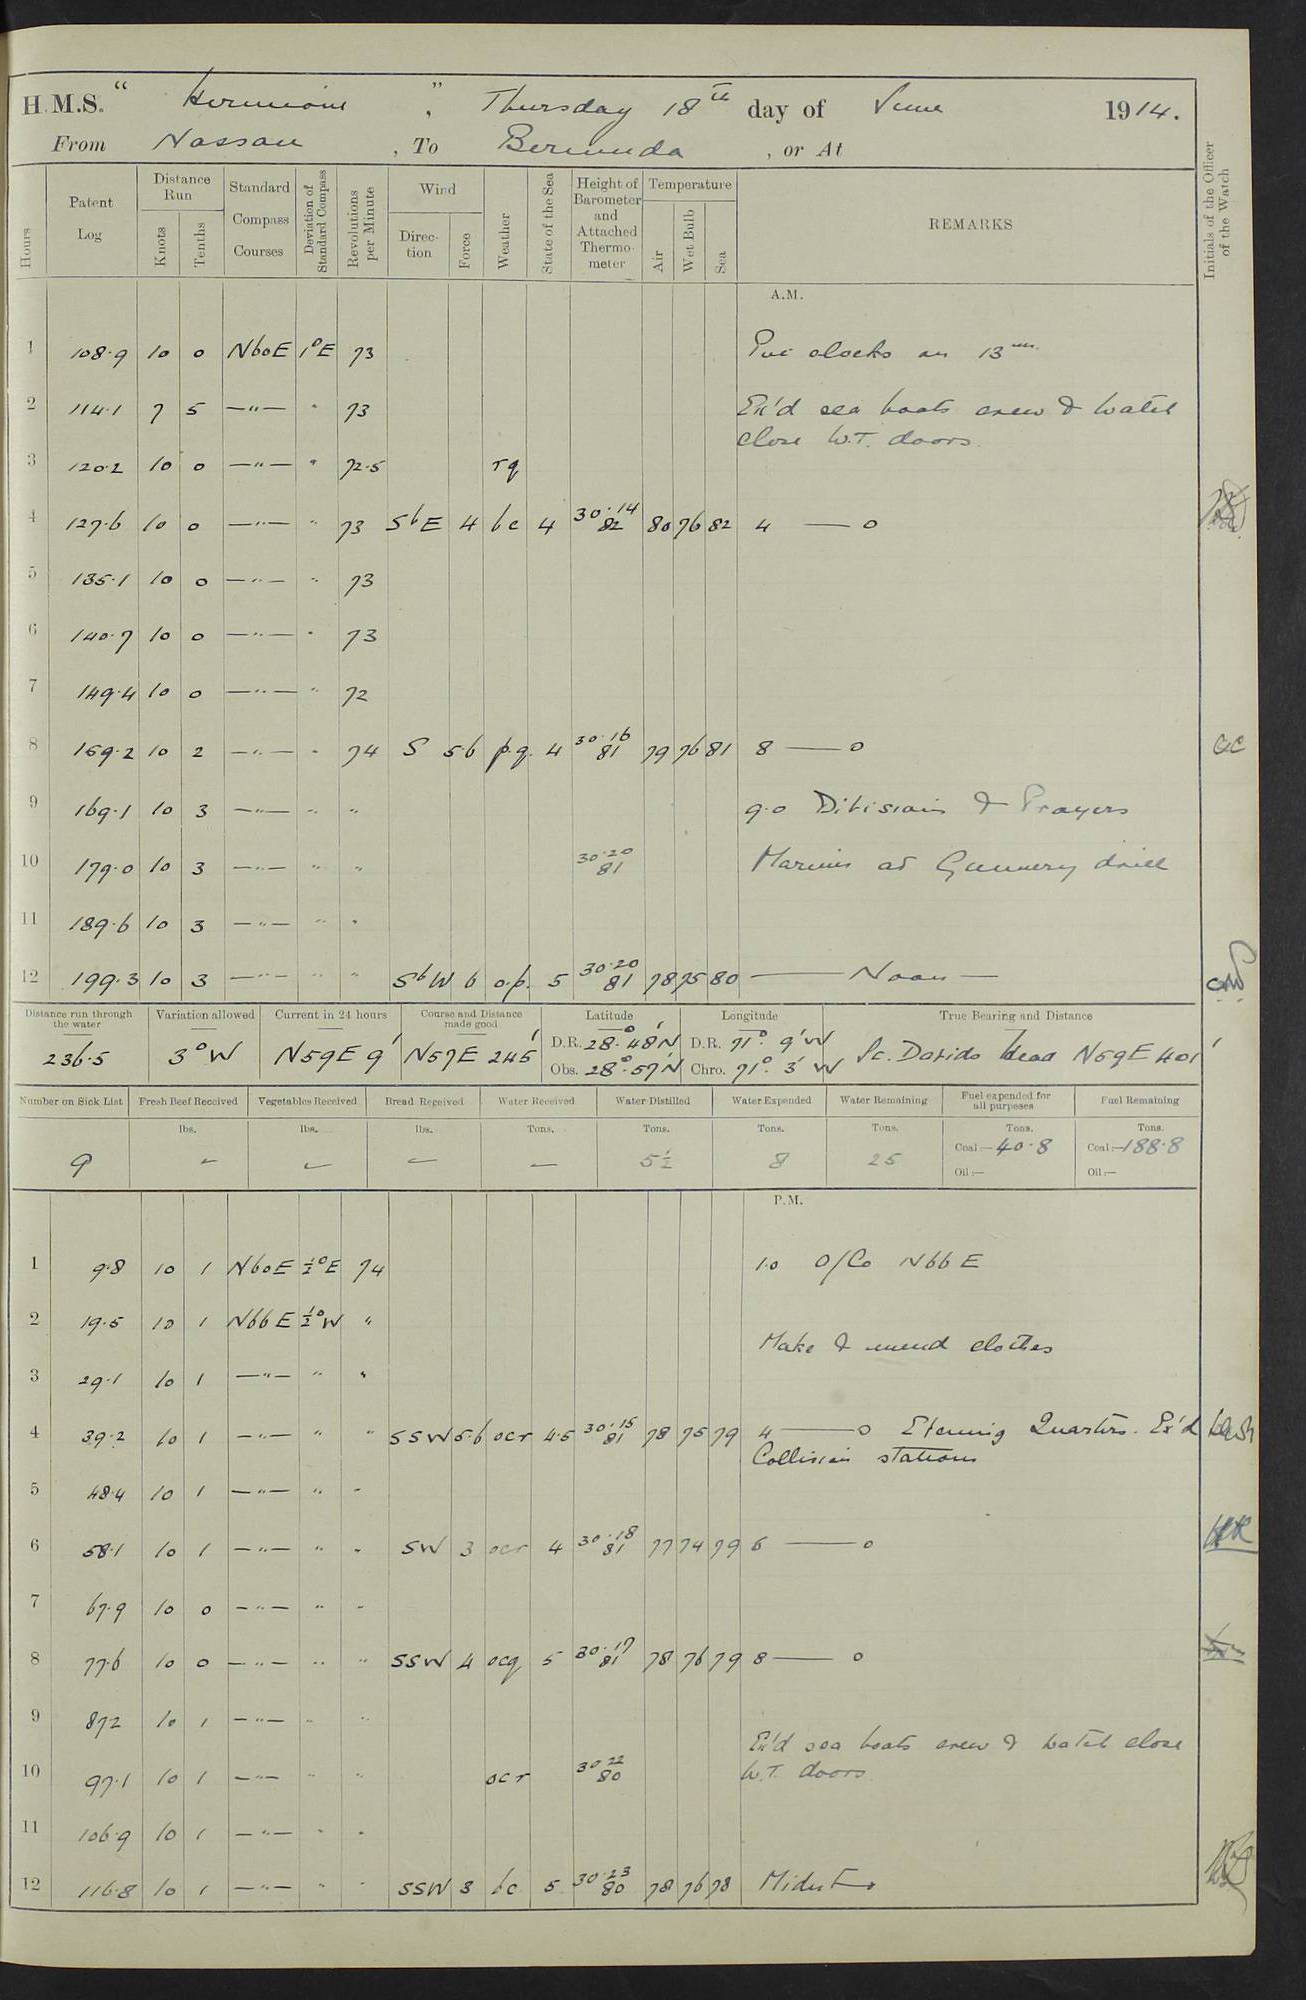 H.M.S. "Hermione", Thursday 18th day of June 1914.
From Nassau, To Bermuda, or At
Hours
Patent Log
Distance Run
Knots
Tenths
Standard Compass Courses
Deviation of Standard Compass
Revolutions per Minute
Wind
Direction
Force
Weather
State of the Sea
Height of Barometer and Attached Thermometer
Temperature
Air
Wet Bulb
Sea
REMARKS
Initials of the Officer of the Watch
A.M.
1 108.9 10 0 N60E 1°E 73 Put clocks on 13 min.
2 114.1 7 5 —"— " 73 Ex'd sea boats crew & watch
close W.T. doors.
3 120.2 10 0 —"— " 72.5 rq
4 127.6 10 0 —"— " 73 SbE 4 bc 4 30.14 82 80 76 82 4 — 0
5 135.1 10 0 —"— " 73
6 140.7 10 0 —"— " 73
7 149.4 10 0 —"— " 72
8 159.2 10 2 —"— " 74 S 5.6 p.q. 4 30.16 81 79 76 81 8 — 0
9 169.1 10 3 —"— " " 9.0 Divisions & Prayers
10 179.0 10 3 —"— " " 30.20 81 Marines at Gunnery drill
11 189.6 10 3 —"— " "
12 199.3 10 3 —"— " " SbW 6 o.p. 5 30.20 81 78 75 80 — Noon —
Distance run through the water
236.5
Variation allowed
3°W
Current in 24 hours
N59E 9'
Course and Distance made good
N57E 245'
Latitude
D.R. 28° 48'N
Obs. 28° 57'N
Longitude
D.R. 71° 9'W
Chro. 71° 3'W
True Bearing and Distance
St. Davids Head N59E 401'
Number on Sick List
9
Fresh Beef Received
lbs.
Vegetables Received
lbs.
Bread Received
lbs.
Water Received
Tons.
—
Water Distilled
Tons.
5½
Water Expended
Tons.
8
Water Remaining
Tons.
25
Fuel expended for all purposes
Tons.
Coal:— 40.8
Oil:—
Fuel Remaining
Tons.
Coal:— 188.8
Oil:—
P.M.
1 9.8 10 1 N60E ½°E 74 1.0 A/Co N66E
2 19.5 10 1 N66E ½°W "
Make & mend clothes
3 29.1 10 1 —"— " "
4 39.2 10 1 —"— " " SSW 5.6 ocr 4.5 30.15 81 78 75 79 4 — 0 Evening Quarters. Ex'd
Collision stations
5 48.4 10 1 —"— " "
6 58.1 10 1 —"— " " SW 3 ocr 4 30.18 81 77 74 79 6 — 0
7 67.9 10 0 —"— " "
8 77.6 10 0 —"— " " SSW 4 ocq 5 30.17 81 78 76 79 8 — 0
9 87.2 10 1 —"— " "
Ex'd sea boats crew & watch close
10 97.1 10 1 —"— " " ocr 30.22 80 W.T. doors.
11 106.9 10 1 —"— " "
12 116.8 10 1 —"— " " SSW 3 bc 5 30.23 80 78 76 78 Midnt